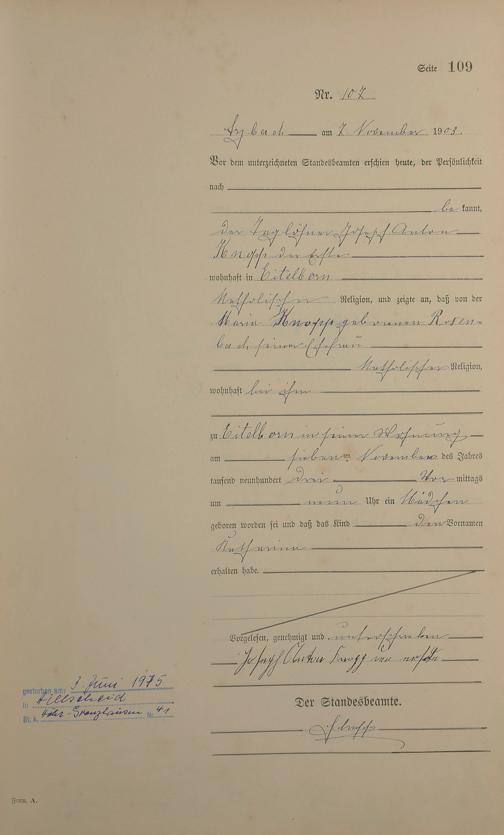 Seite 109
Nr. 107
am 7 November 1903.
Vor dem unterzeichneten Standesbeamten erschien heute, der Persönlichkeit
nach
be kannt,
der Taglöhner Joseph Anton
Knopp der Erste
wohnhaft in Eitelborn
Katholischer Religion, und zeigte an, daß von der
Maria Knopp geborenen Rosen-
bach seiner Ehefrau
Katholischer Religion,
wohnhaft bei ihm
zu Eitelborn in seiner Wohnung
am sieben ten November des Jahres
tausend neunhundert drei Vor mittags
um neun Uhr ein Mädchen
geboren worden sei und daß das Kind den Vornamen
Katharina
erhalten habe.
Vorgelesen, genehmigt und unterschrieben
Joseph Anton Knopp der erste
Der Standesbeamte.
gestorben am: 3 Juni 1975
in Hillscheid
St. A. Höhr-Grenzhausen Nr. 41
Form. A.